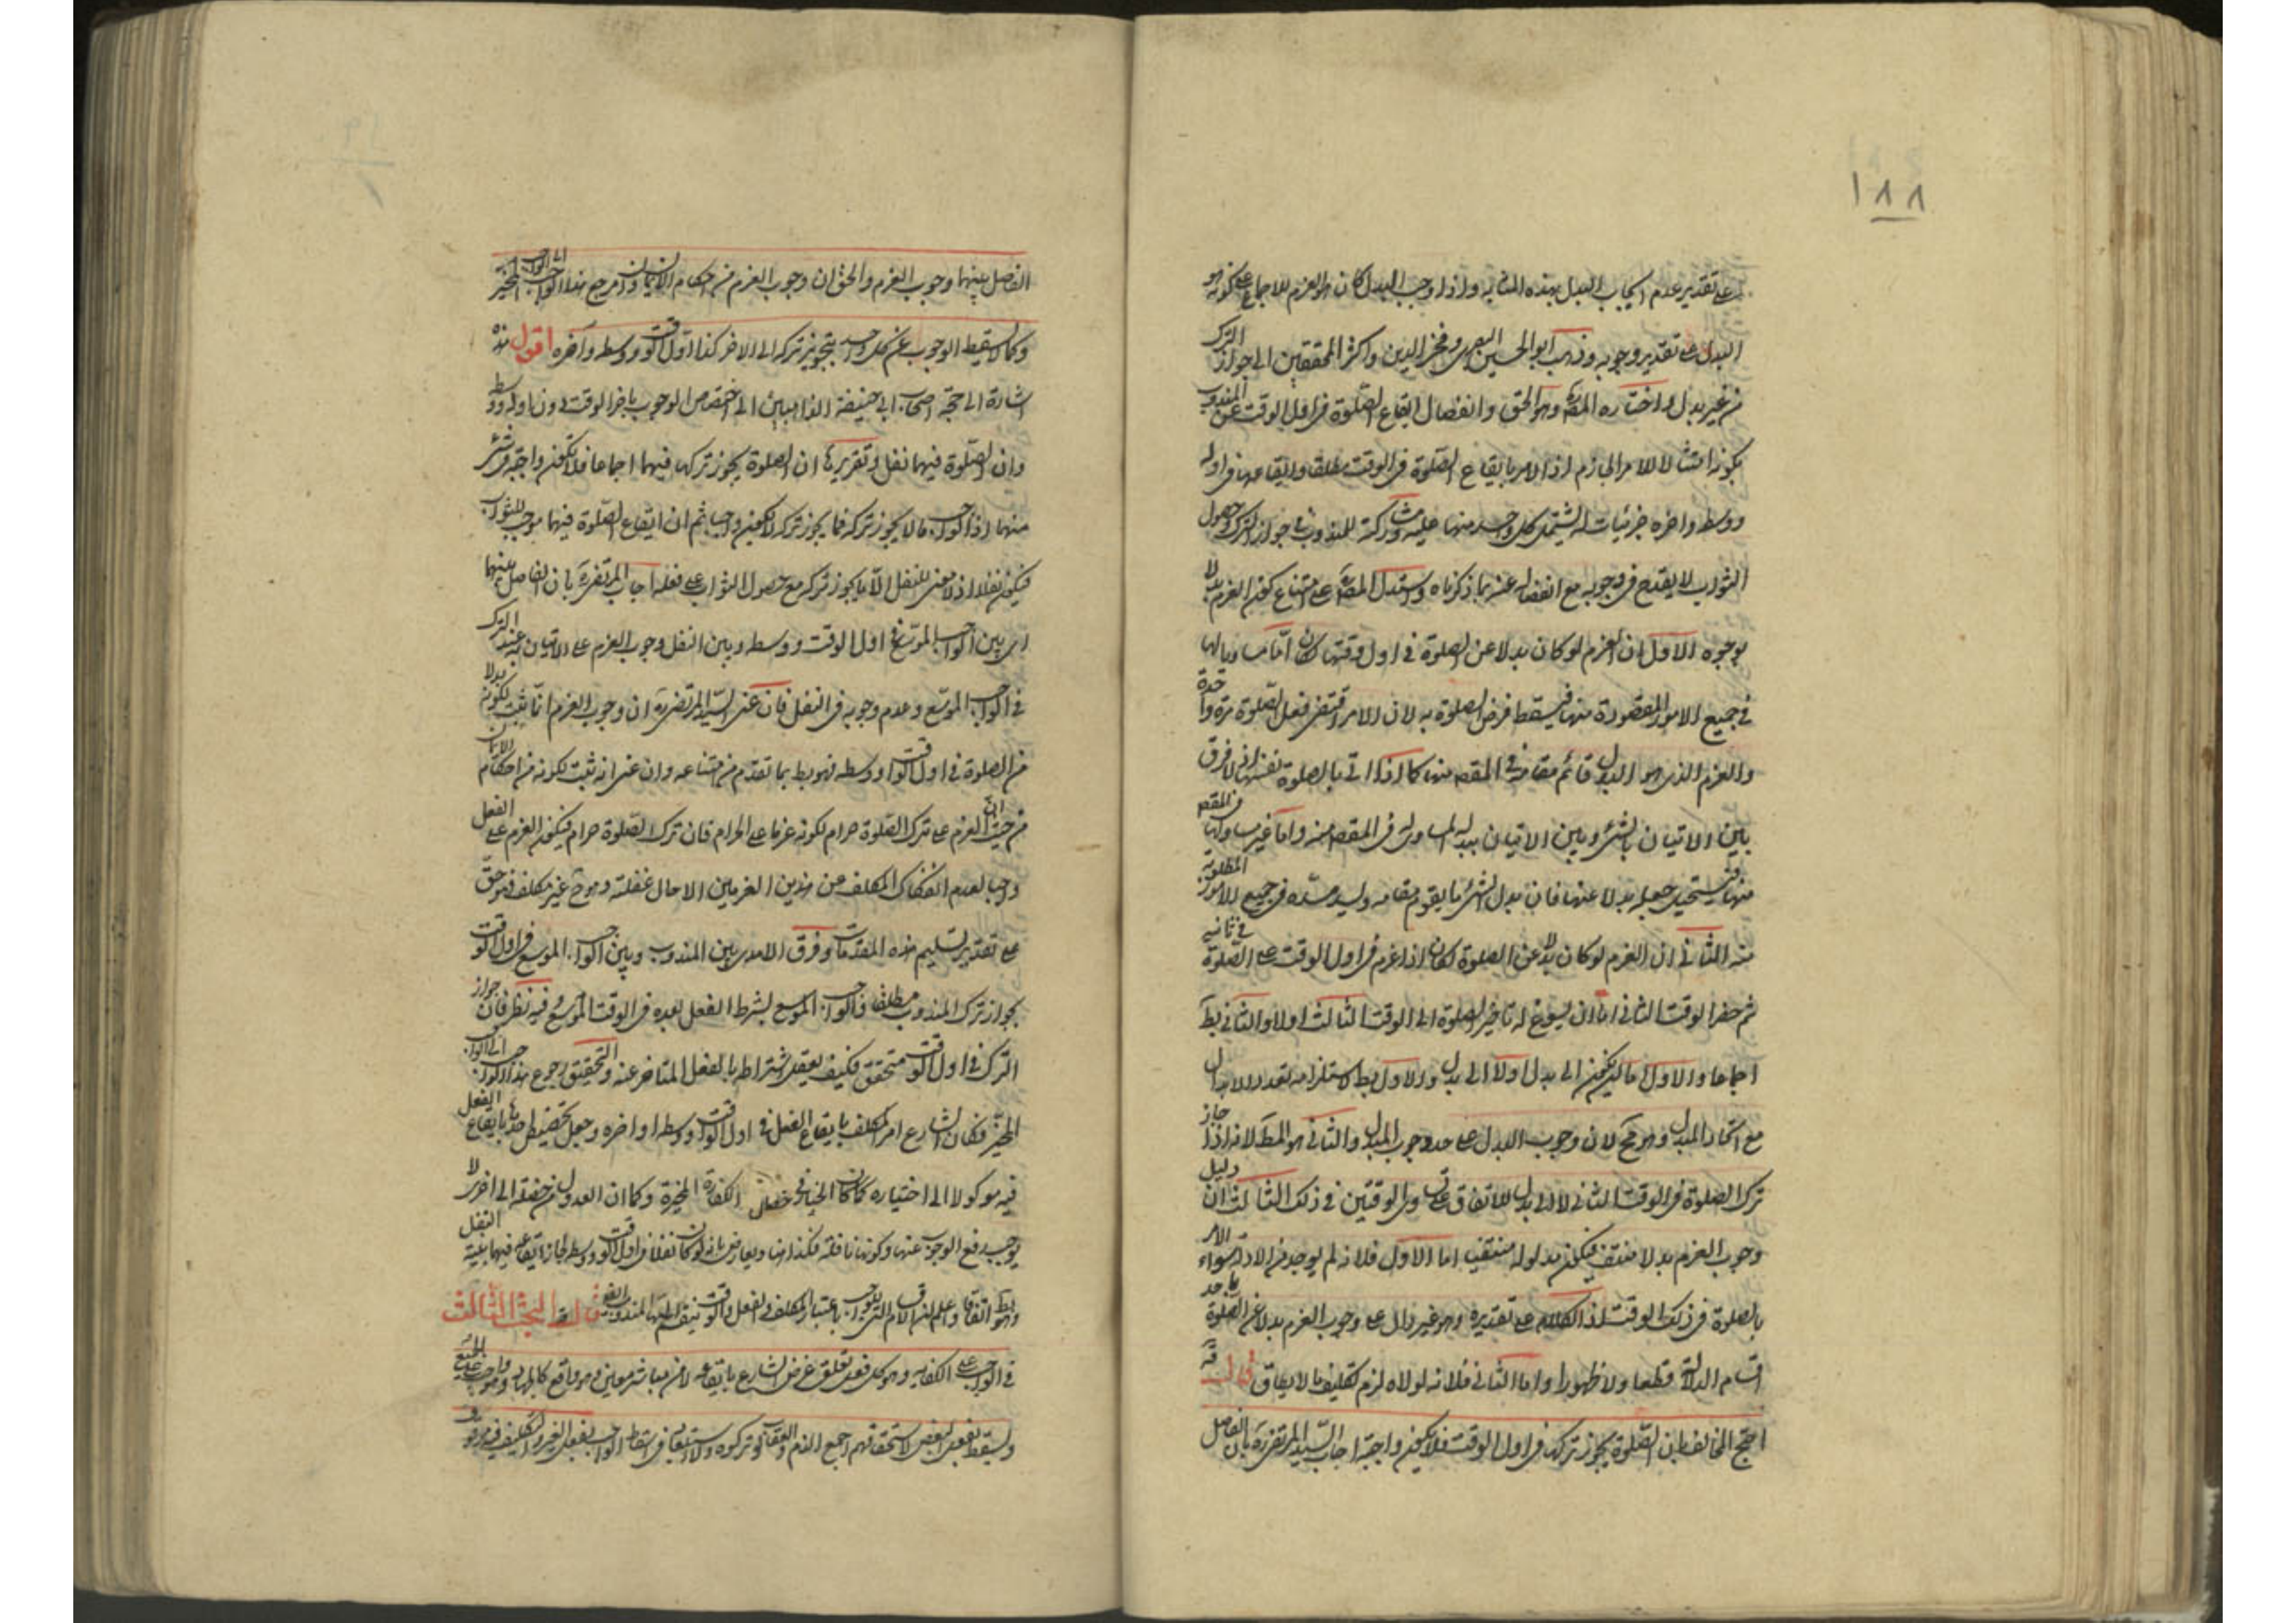 ١٨٨
على تقدير عدم ايجاب البدل بهذه المثابة واذا وجب البدل كان هو العزم للاجماع على كونه هو
البدل على تقدير وجوبه وذهب ابو الحسين البصري وفخر الدين واكثر المحققين الى جواز الترك
من غير بدل واختاره المص وهو الحق وانفصال ايقاع الصلوة في اول الوقت عن المندوب
بكونه امتثالا للامر الجازم اذ الامر بايقاع الصلوة في الوقت مطلقا وايقاعها في اوله
ووسطه واخره جزئيات له يشتمل كل واحد منها عليه ومشاركته للمندوب في جواز الترك وحصول
الثواب لا يقدح في وجوبه مع انفصاله عنه بما ذكرناه واستدل المص على امتناع كون العزم بدلا
بوجوه الاول ان العزم لو كان بدلا عن الصلوة في اول وقتها لكان اما مساويا لها
في جميع الامور المقصودة منها فيسقط فرض الصلوة به لان الامر اقتضى فعل الصلوة مرة واحدة
والعزم الذي هو البدل قائم مقامها في المقصد منها كما اذا اتى بالصلوة نفسها اذ لا فرق
بين الاتيان بالشئ وبين الاتيان ببدله المساوي له في المقصد منه واما غير مساو لها في المقصد
منها فيستحيل جعله بدلا عنها فان بدل الشئ ما يقوم مقامه ويسد مسده في جميع الامور المطلوبة
منه الثاني ان العزم لو كان بدلا عن الصلوة لكان اذا عزم في اول الوقت على الصلوة في ثانيه
ثم حضر الوقت الثاني اما ان يسوغ له تاخير الصلوة الى الوقت الثالث او لا والثاني بط
اجماعا والاول اما ان يكون الى بدل او لا الى بدل والاول بط لاستلزامه تعدد الابدال
مع اتحاد المبدل وهو مح لان وجوب البدل على حد وجوب المبدل والثاني هو المط لانه اذا جاز
ترك الصلوة في الوقت الثاني لا الى بدل للاتفاق على تساوي الوقتين في ذلك الثالث ان دليل
وجوب العزم بدلا منتف فيكون مدلوله منتفيا اما الاول فلانه لم يوجد من الادلة سواء الامر
بالصلوة في ذلك الوقت اذ الكلام على تقديره وهو غير دال على وجوب العزم بدلا عن الصلوة باحد
اقسام الدلالة قطعا ولا ظهورا واما الثاني فلانه لولاه لزم تكليف ما لا يطاق قال قه
احتج المخالف بان الصلوة يجوز تركها في اول الوقت فلا يكون واجبة اجاب السيد المرتضى ره بان الفاصل
الفصل بينهما وجوب العزم والحق ان وجوب العزم من احكام الايمان وان مرجع هذا الواجب الى الواجب المخير
وكما لا يسقط الوجوب عن كل واحد بتجويز تركه الى الاخر كذا اول الوقت ووسطه وآخره اقول هذه
اشارة الى حجة اصحاب ابي حنيفة الذاهبين الى اختصاص الوجوب باخر الوقت دون اوله ووسطه
وان الصلوة فيهما نفل وتقريرها ان الصلوة يجوز تركها فيهما اجماعا فلا تكون واجبة في شئ
منهما اذ الواجب ما لا يجوز تركه فما يجوز تركه لا يكون واجبا ثم ان ايقاع الصلوة فيهما موجب للثواب
فيكون نفلا اذ لا معنى للنفل الا ما يجوز تركه مع حصول الثواب على فعله اجاب المرتضى ره بان الفاصل بينهما
اي بين الواجب الموسع في اول الوقت ووسطه وبين النفل وجوب العزم على الاتيان به عند الترك
في الواجب الموسع وعدم وجوبه في النفل فان عنى السيد المرتضى ره ان وجوب العزم انما ثبت لكونه بدلا
من الصلوة في اول الوقت او وسطه فهو بط بما تقدم من امتناعه وان عنى انه ثبت لكونه من احكام الايمان
من حيث ان العزم على ترك الصلوة حرام لكونه عزما على الحرام فان ترك الصلوة حرام فيكون العزم على الفعل
واجبا لعدم انفكاك المكلف من هذين العزمين الا حال غفلته وهو ح غير مكلف فهو حق
على تقدير تسليم هذه المقدمات وفرق الامدي بين المندوب وبين الواجب الموسع في اول الوقت
بجواز ترك المندوب مطلقا والواجب الموسع بشرط الفعل بعده في الوقت الموسع وفيه نظر فان جواز
الترك في اول الوقت متحقق فكيف يعقل اشتراطه بالفعل المتاخر عنه والتحقيق رجوع هذا الواجب الى الواجب
المخير فكان الشارع امر المكلف بايقاع الفعل في اول الوقت او وسطه او اخره وجعل تخصيصها بايقاع الفعل
فيه موكولا الى اختياره كما كان الخيار في خصال الكفارة المخيرة وكما ان العدول من خصلة الى اخرى لا
يوجب رفع الوجوب عنها وكونها نافلة فكذا هنا ويعارض بانه لو كان نفلا في اول الوقت ووسطه لجاز ايقاعه فيهما بنية النفل
وهو بط اتفاقا واعلم ان اقسام الواجب باعتبار المكلف والفعل والوقت قال البحث الثالث
في الواجب على الكفاية وهو كل فعل تعلق غرض الشارع بايقاعه لا من مباشر معين وهو واقع كالجهاد وهو واجب على الجميع
ويسقط بفعل البعض لاستحقاقهم اجمع الذم والعقاب لو تركوه ولا استبعاد في اسقاط الواجب بفعل الغير